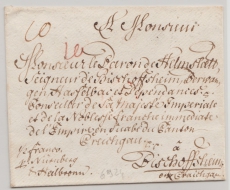 A Monsieur
Monsieur le Baron de Helmstatt
Seigneur de Bischoffsheim Berwan
gen Hasselbac et Dependances
Conseiller de sa Majesté Imperiale
et de la Noblesse franche immediate
de l'Empire en Suabe du Canton
Creichgau
à
Bischoffsheim
franco
Nürnberg
Halbronn